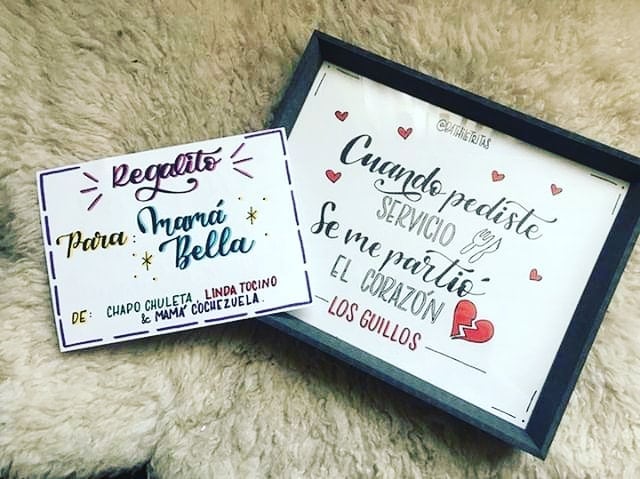 Regalito
Para: Mamá
Bella
DE: CHAPO CHULETA, LINDA TOCINO
& MAMÁ COCHEZUELA.
@PATHLETRITAS
Cuando pediste
SERVICIO
Se me partió
EL CORAZÓN
LOS GUILLOS